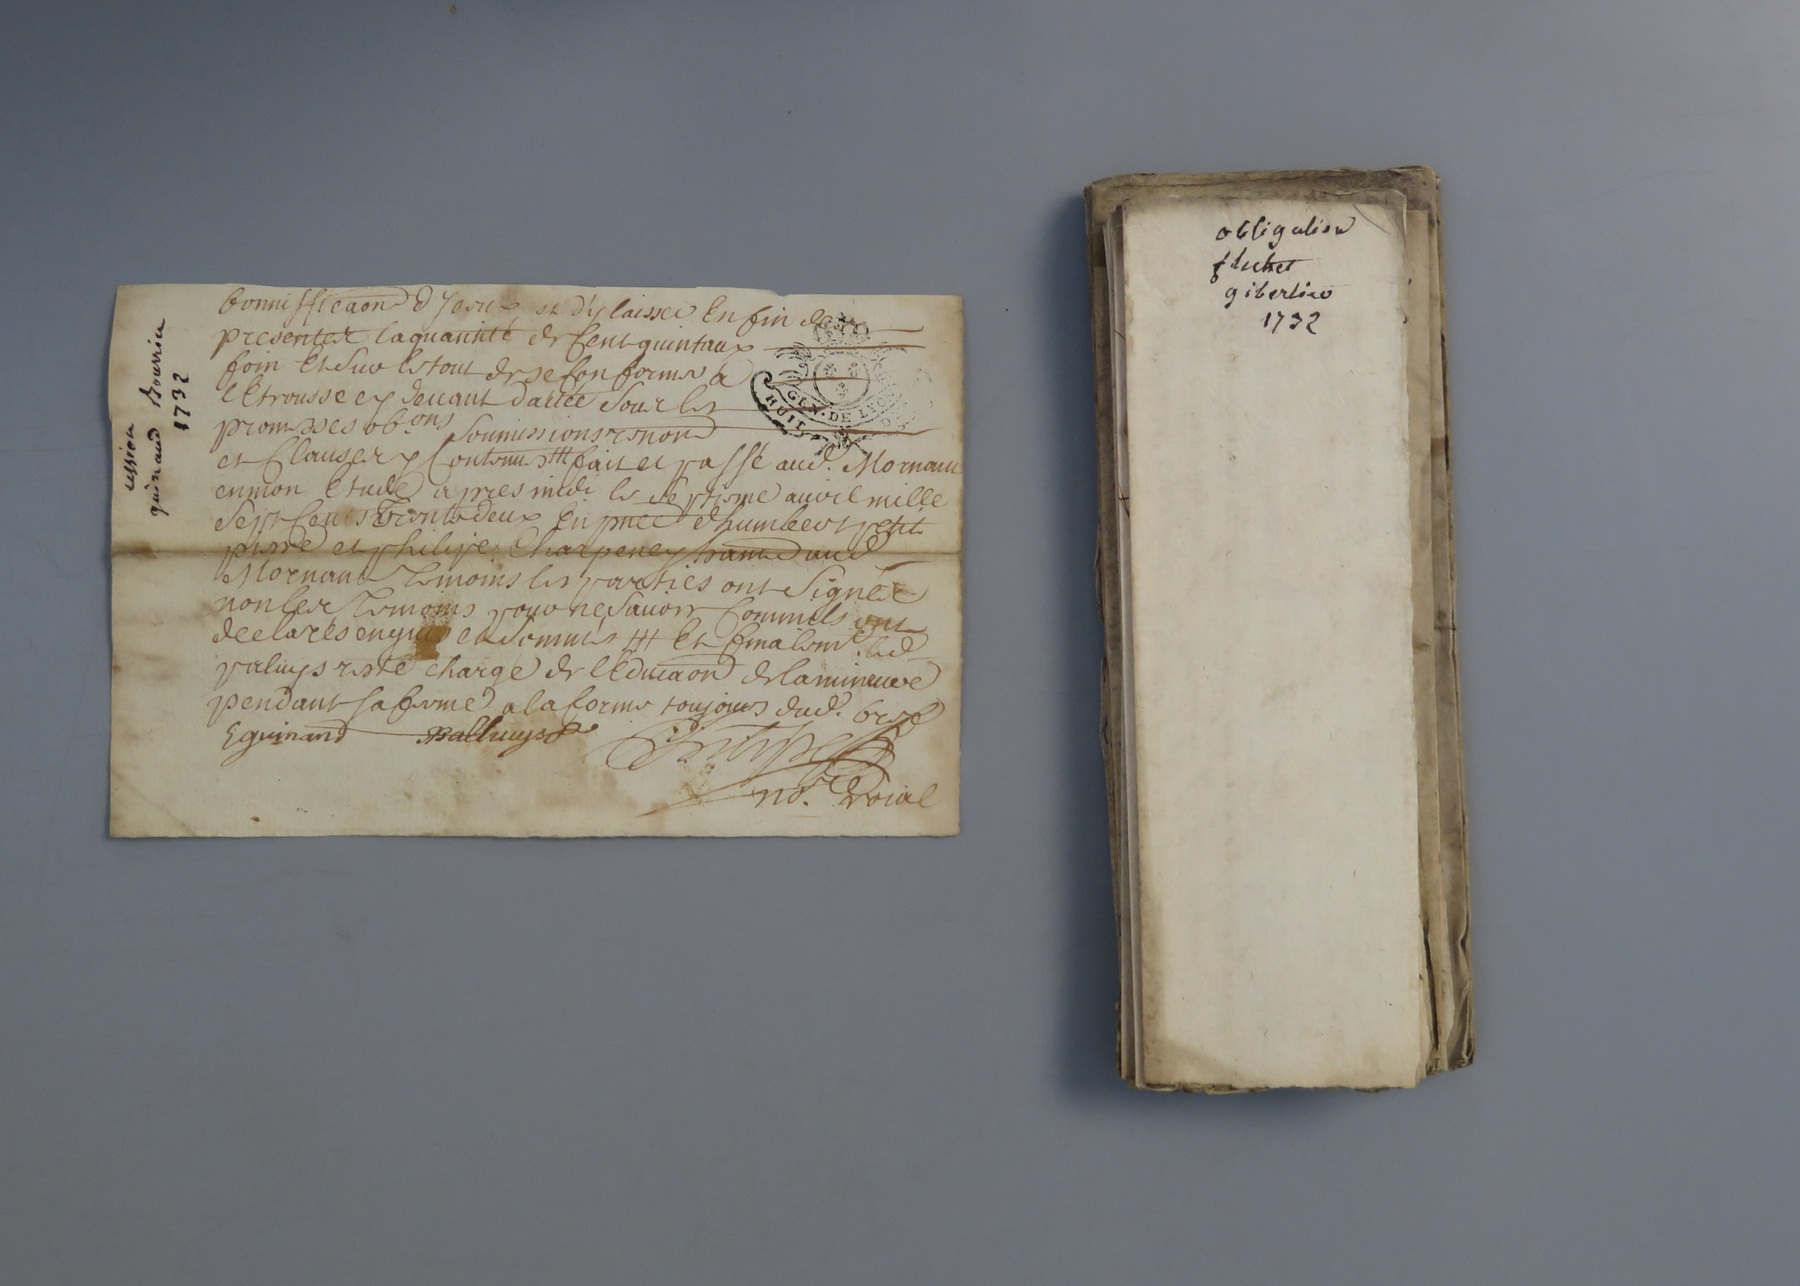 cession
quinaud Bouvier
1732
bonnifficaon d'Jceux et d'y laisser En fin de
presenter la quantité de Cent quintaux
foin Et sur Le tout de se Conformer a
L'Etrousse cy devant dattée sous les
promesses obons soumissions renonõn
et Clauses y Contenues fait et passé aud. Mornant
en mon Etude apres midi le septieme auvril mille
Sept Cents Trente deux En pnce d'humbert petit
pierre et philipe Charpeney hant aud
Mornant Temoins les parties ont Signé Et
non les Temoins pour ne Scavoir Comme ils ont
declarés enquis et sommés Et finalemt. led
valuys resté charge de l'Educaon de la mineure
pendant sa ferme a la forme toujours dud.
Equinand Balluys
nore. Roial
GEN. DE LYON
HUIT
obligation
fluchet
gibertier
1732